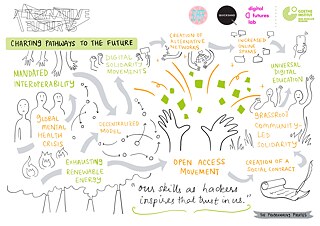 ALTERNATIVE
CHARTING PATHWAYS TO THE FUTURE
CREATION OF
ALTERNATIVE
NETWORKS
INCREASED
ONLINE
digital
futures
lab
GOETHE
INSTITUT
MANDATED
INTEROPERABILITY
DIGITAL
SOLIDARITY
MOVEMENTS
UNIVERSAL
DIGITAL
EDUCATION
GLOBAL
MENTAL
HEALTH
CRISIS
DECENTRALIZED
MODEL
GRASSROOT
COMMUNITY-
LED
SOLIDARITY
EXHAUSTING
RENEWABLE
ENERGY
OPEN ACCESS
MOVEMENT
CREATION OF A
SOCIAL CONTRACT
"our skills as hackers
inspires that trust in us."